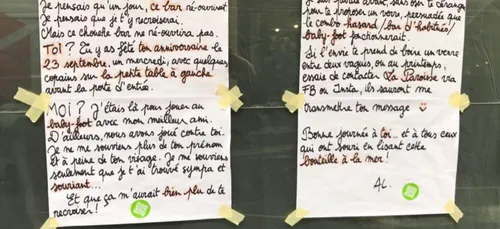 Je pensais qu'un jour, ce bar ré-ouvrirait
Je pensais que je t'y recroiserai.
Mais ce chouette bar ne ré-ouvrira pas.
Toi? Tu y as fêté ton anniversaire le
23 septembre, un mercredi, avec quelques
copains sur la petite table à gauche
avant la porte d'entrée.
Moi? J'étais là pour jouer au
baby-foot avec mon meilleur ami.
D'ailleurs, nous avons joué contre toi.
Je ne me souviens plus de ton prénom
et à peine de ton visage. Je me souviens
seulement que je t'ai trouvé sympa et
souriant...
Et que ça m'aurait bien plu de te
recroiser!
pour te proposer un verre, persuadée que
le combo hasard / bar d'habitués /
baby-foot fonctionnerait.
Si l'envie te prend de boire un verre
entre deux vagues, ou au printemps,
essaie de contacter La Paroisse via
FB ou Insta, ils sauront me
transmettre ton message
Bonne journée à toi... et à tous ceux
qui ont souri en lisant cette
bouteille à la mer!